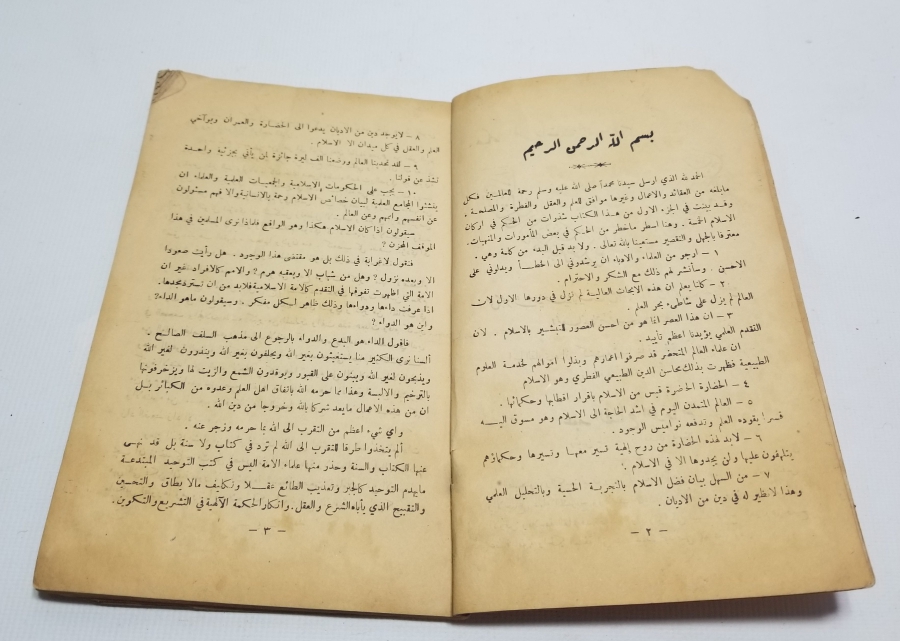 بسم الله الرحمن الرحيم
الحمد لله الذي ارسل سيدنا محمداً صلى الله عليه وسلم رحمة للعالمين فكل
مايبلغه من العقائد والاعمال وغيرها موافق للعلم والعقل والفطرة والمصلحة .
وقد بينت في الجزء الاول من هذا الكتاب شذرات من الحكم في اركان
الاسلام الخمسة . وهنا اسطر ماخطر من الحكم في بعض المأمورات والمنهيات .
معترفا بالجهل والتقصير مستعينا بالله تعالى . ولا بد قبل البدء من كلمة وهي .
١ – ارجو من العلماء والادباء ان يرشدوني الى الخطأ ويدلوني على
الاحسن . وسأنشر لهم ذلك مع الشكر والاحترام .
٢ – كلنا يعلم ان هذه الابحاث العالية لم تزل في دورها الاول لان
العالم لم يزل على شاطيء بحر العلم .
٣ – ان هذا العصر انما هو من احسن العصور للتبشير بالاسلام . لان
التقدم العلمي يؤيدنا اعظم تأييد .
ان علماء العالم المتحضر قد صرفوا اعمارهم وبذلوا اموالهم لخدمة العلوم
الطبيعية فظهرت بذلك محاسن الدين الطبيعي الفطري وهو الاسلام
٤ – الحضارة الحاضرة قبس من الاسلام باقرار اقطابها وحكمائها .
٥ – العالم المتمدن اليوم في اشد الحاجة الى الاسلام وهو مسوق اليه
قسرا يقوده العلم وتدفعه نواميس الوجود .
٦ – لابد لهذه الحضارة من روح إلهية تسير معها وتسيرها وحكماؤهم
يتلهفون عليها ولن يجدوها الا في الاسلام .
٧ – من السهل بيان فضل الاسلام بالتجربة الحسية وبالتحليل العلمي
وهذا لانظير له في دين من الاديان .
– ٢ –
٨ – لايوجد دين من الاديان يدعوا الى الحضارة والعمران ويوآخي
العلم والعقل في كل ميدان الا الاسلام .
٩ – لقد تحدينا العالم ووضعنا الف ليرة جائزة لمن يأتي بجزئية واحدة
تشذ عن قولنا .
١٠ – يجب على الحكومات الإسلامية والجمعيات العلمية والعلماء ان
ينشئوا المجامع العلمية لبيان خصائص الاسلام رحمة بالانسانية والا فهم مسئولون
عن انفسهم وأممهم وعن العالم .
سيقولون اذا كان الاسلام هكذا وهو الواقع فلماذا نرى المسلمين في هذا
الموقف المحزن ?
فنقول لاغرابة في ذلك بل هو مقتضى هذا الوجود . هل رأيت صعودا
الا وبعده نزول ? وهل من شباب الا ويعقبه هرم ? والامم كالأفراد غير ان
الامة التي اظهرت تفوقها في التقدم كالامة الاسلامية فلابد من ان تسترد مجدها .
اذا عرفت داءها ودواءها وذلك ظاهر لكل مفكر . وسيقولون ماهو الداء ?
واين هو الدواء ?
فاقول الداء هو البدع والدواء بالرجوع الى مذهب السلف الصالح .
ألسنا نرى الكثير منا يستغيثون بغير الله ويحلفون بغير الله وينذرون لغير الله
ويذبحون لغير الله ويبنون على القبور ويوقدون الشمع والزيت لها ويزخرفونها
بالترخيم والالبسة وهذا مما حرمه الله باتفاق اهل العلم وعدوه من الكبائر بل
ان من هذه الاعمال مايعد شركا بالله وخروجا من دين الله .
واي شيء اعظم من التقرب الى الله بما حرمه وزجر عنه .
ألم يتخذوا طرقا للتقرب الى الله لم ترد في كتاب ولا سنة بل قد نهى
عنها الكتاب والسنة وحذر منها علماء الامة اليس في كتب التوحيد المبتدعة
مايهدم التوحيد كالجبر وتعذيب الطائع عقلا وتكليف مالا يطاق والتحسين
والتقبيح الذي يأباه الشرع والعقل . وانكار الحكمة الآلهية في التشريع والتكوين .
– ٣ –